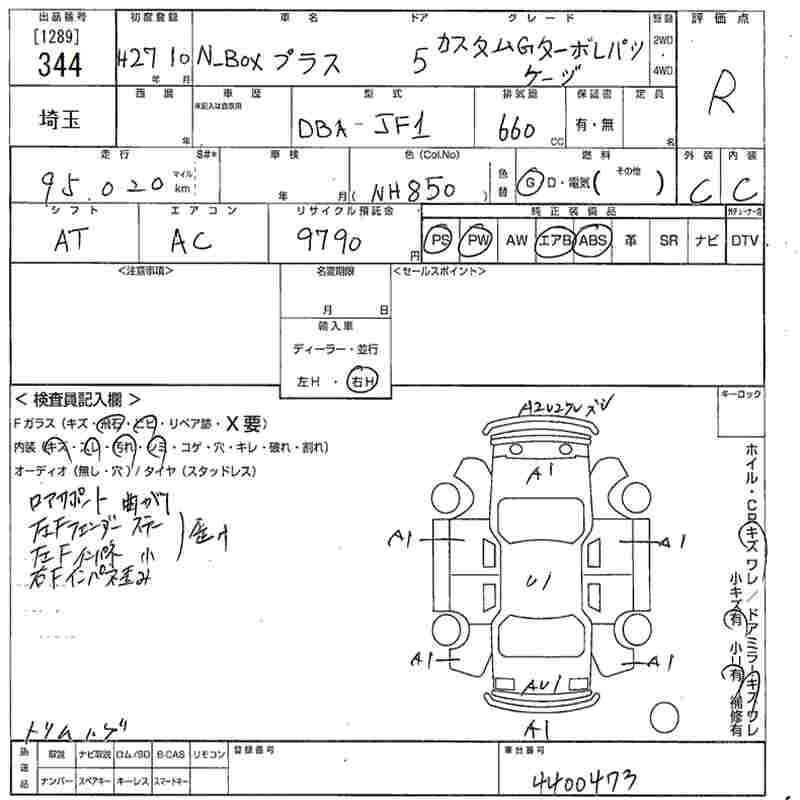 出品番号 初度登録 車名 ドア グレード 登録 評価点
[1289]
344
H27 10
年 月
N_BOX プラス
5
カスタムGターボLパッ
ケージ
2WD
・
4WD
R
埼玉
西暦
年
車歴
未記入は自家用
型式
DBA-JF1
排気量
660
CC
保証書
有・無
定員
名
走行 S#* 車検 色(Col.No) 燃料 外装 内装
95,020
マイル
km
年 月
(NH850)
色替
G D・電気( その他 )
C C
シフト エアコン リサイクル預託金 純正装備品
AT AC 9790
円
PS PW AW エアB ABS 革 SR ナビ DTV
<注意事項> 名変期限 <セールスポイント>
月 日
輸入車
ディーラー・並行
左H・右H
<検査員記入欄>
キーロック
Fガラス(キズ・飛石・ヒビ・リペア跡・X要)
内装(キズ・スレ・汚れ・シミ・コゲ・穴・キレ・破れ・割れ)
オーディオ(無し・穴)/タイヤ(スタッドレス)
ロアサポート 曲がり
左Fフェンダー ステー
左Fインパネ 小
右Fインパネ歪み
A2U2クレズレ
A1
A1 A1
U1
A1 A1
AU1
A1
ホイル・CPキズ ワレ/ドアミラーキズ ワレ
小キズ有 小凹有 補修有
トリム ハゲ
後送品
取説 ナビ取説 ロム/SD B-CAS リモコン
ナンバー スペアキー キーレス スマートキー
登録番号
車台番号
4400473